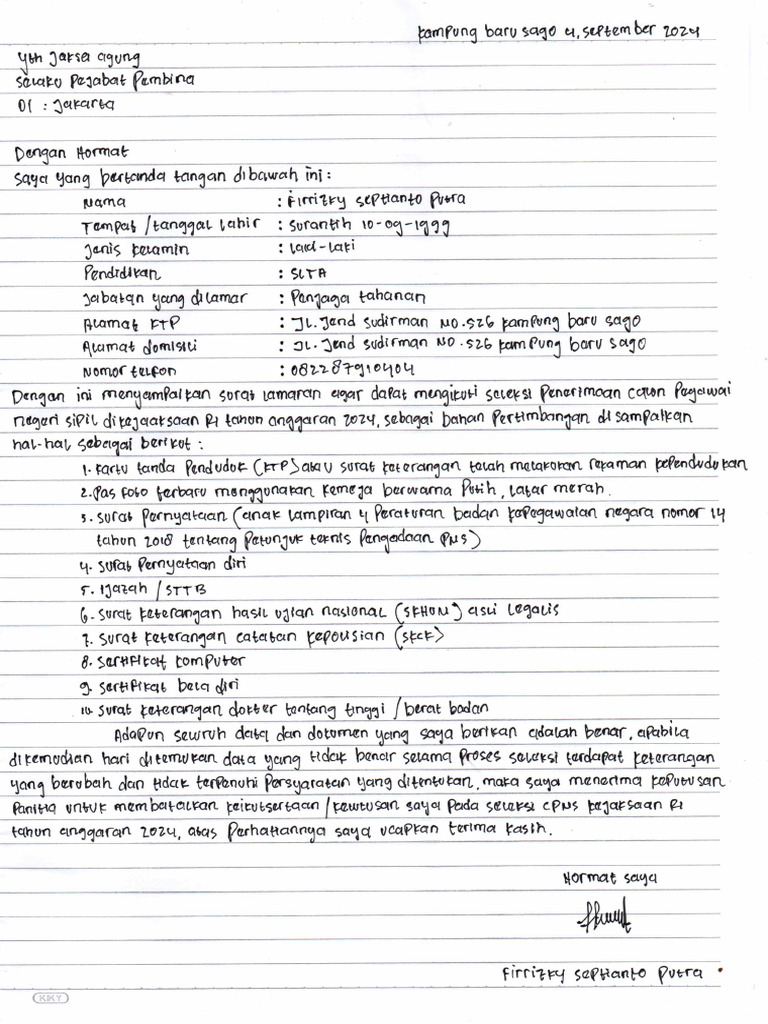 Kampung baru sago 4, september 2024
Yth Jaksa agung
Selaku Pejabat Pembina
DI : Jakarta
Dengan Hormat
Saya yang bertanda tangan dibawah ini :
Nama : Firrizky Septianto Putra
Tempat / tanggal lahir : Surantih 10-09-1999
Jenis kelamin : Laki-laki
Pendidikan : SLTA
Jabatan yang dilamar : Penjaga tahanan
Alamat KTP : JL. Jend Sudirman NO.526 kampung baru sago
Alamat domisili : JL. Jend Sudirman NO.526 kampung baru sago
Nomor telfon : 082287910404
Dengan ini menyampaikan surat lamaran agar dapat mengikuti seleksi Penerimaan calon Pegawai
negeri sipil dikejaaksaan RI tahun anggaran 2024, sebagai bahan Pertimbangan disampaikan
hal-hal sebagai berikut :
1. Kartu tanda Penduduk (KTP) atau surat keterangan telah melakukan rekaman kependudukan
2. Pas foto terbaru menggunakan kemeja berwarna Putih, latar merah.
3. Surat Pernyataan (anak lampiran 4 Peraturan badan kepegawaian negara nomor 14
tahun 2018 tentang Petunjuk teknis Pengadaan PNS)
4. Surat Pernyataan diri
5. Ijazah / STTB
6. Surat keterangan hasil ujian nasional (SKHUN) asli legalis
7. Surat keterangan catatan kepolisian (SKCK)
8. Sertifikat komputer
9. Sertifikat bela diri
10. Surat keterangan dokter tentang tinggi / berat badan
Adapun seluruh data dan dokumen yang saya berikan adalah benar, apabila
dikemudian hari ditemukan data yang tidak benar selama proses seleksi terdapat keterangan
yang berubah dan tidak terpenuhi Persyaratan yang ditentukan, maka saya menerima keputusan
Panitia untuk membatalkan keikutsertaan / kelulusan saya Pada seleksi CPNS kejaksaan RI
tahun anggaran 2024, atas Perhatiannya saya ucapkan terima kasih.
Hormat saya
Firrizky Septianto Putra
KIKY